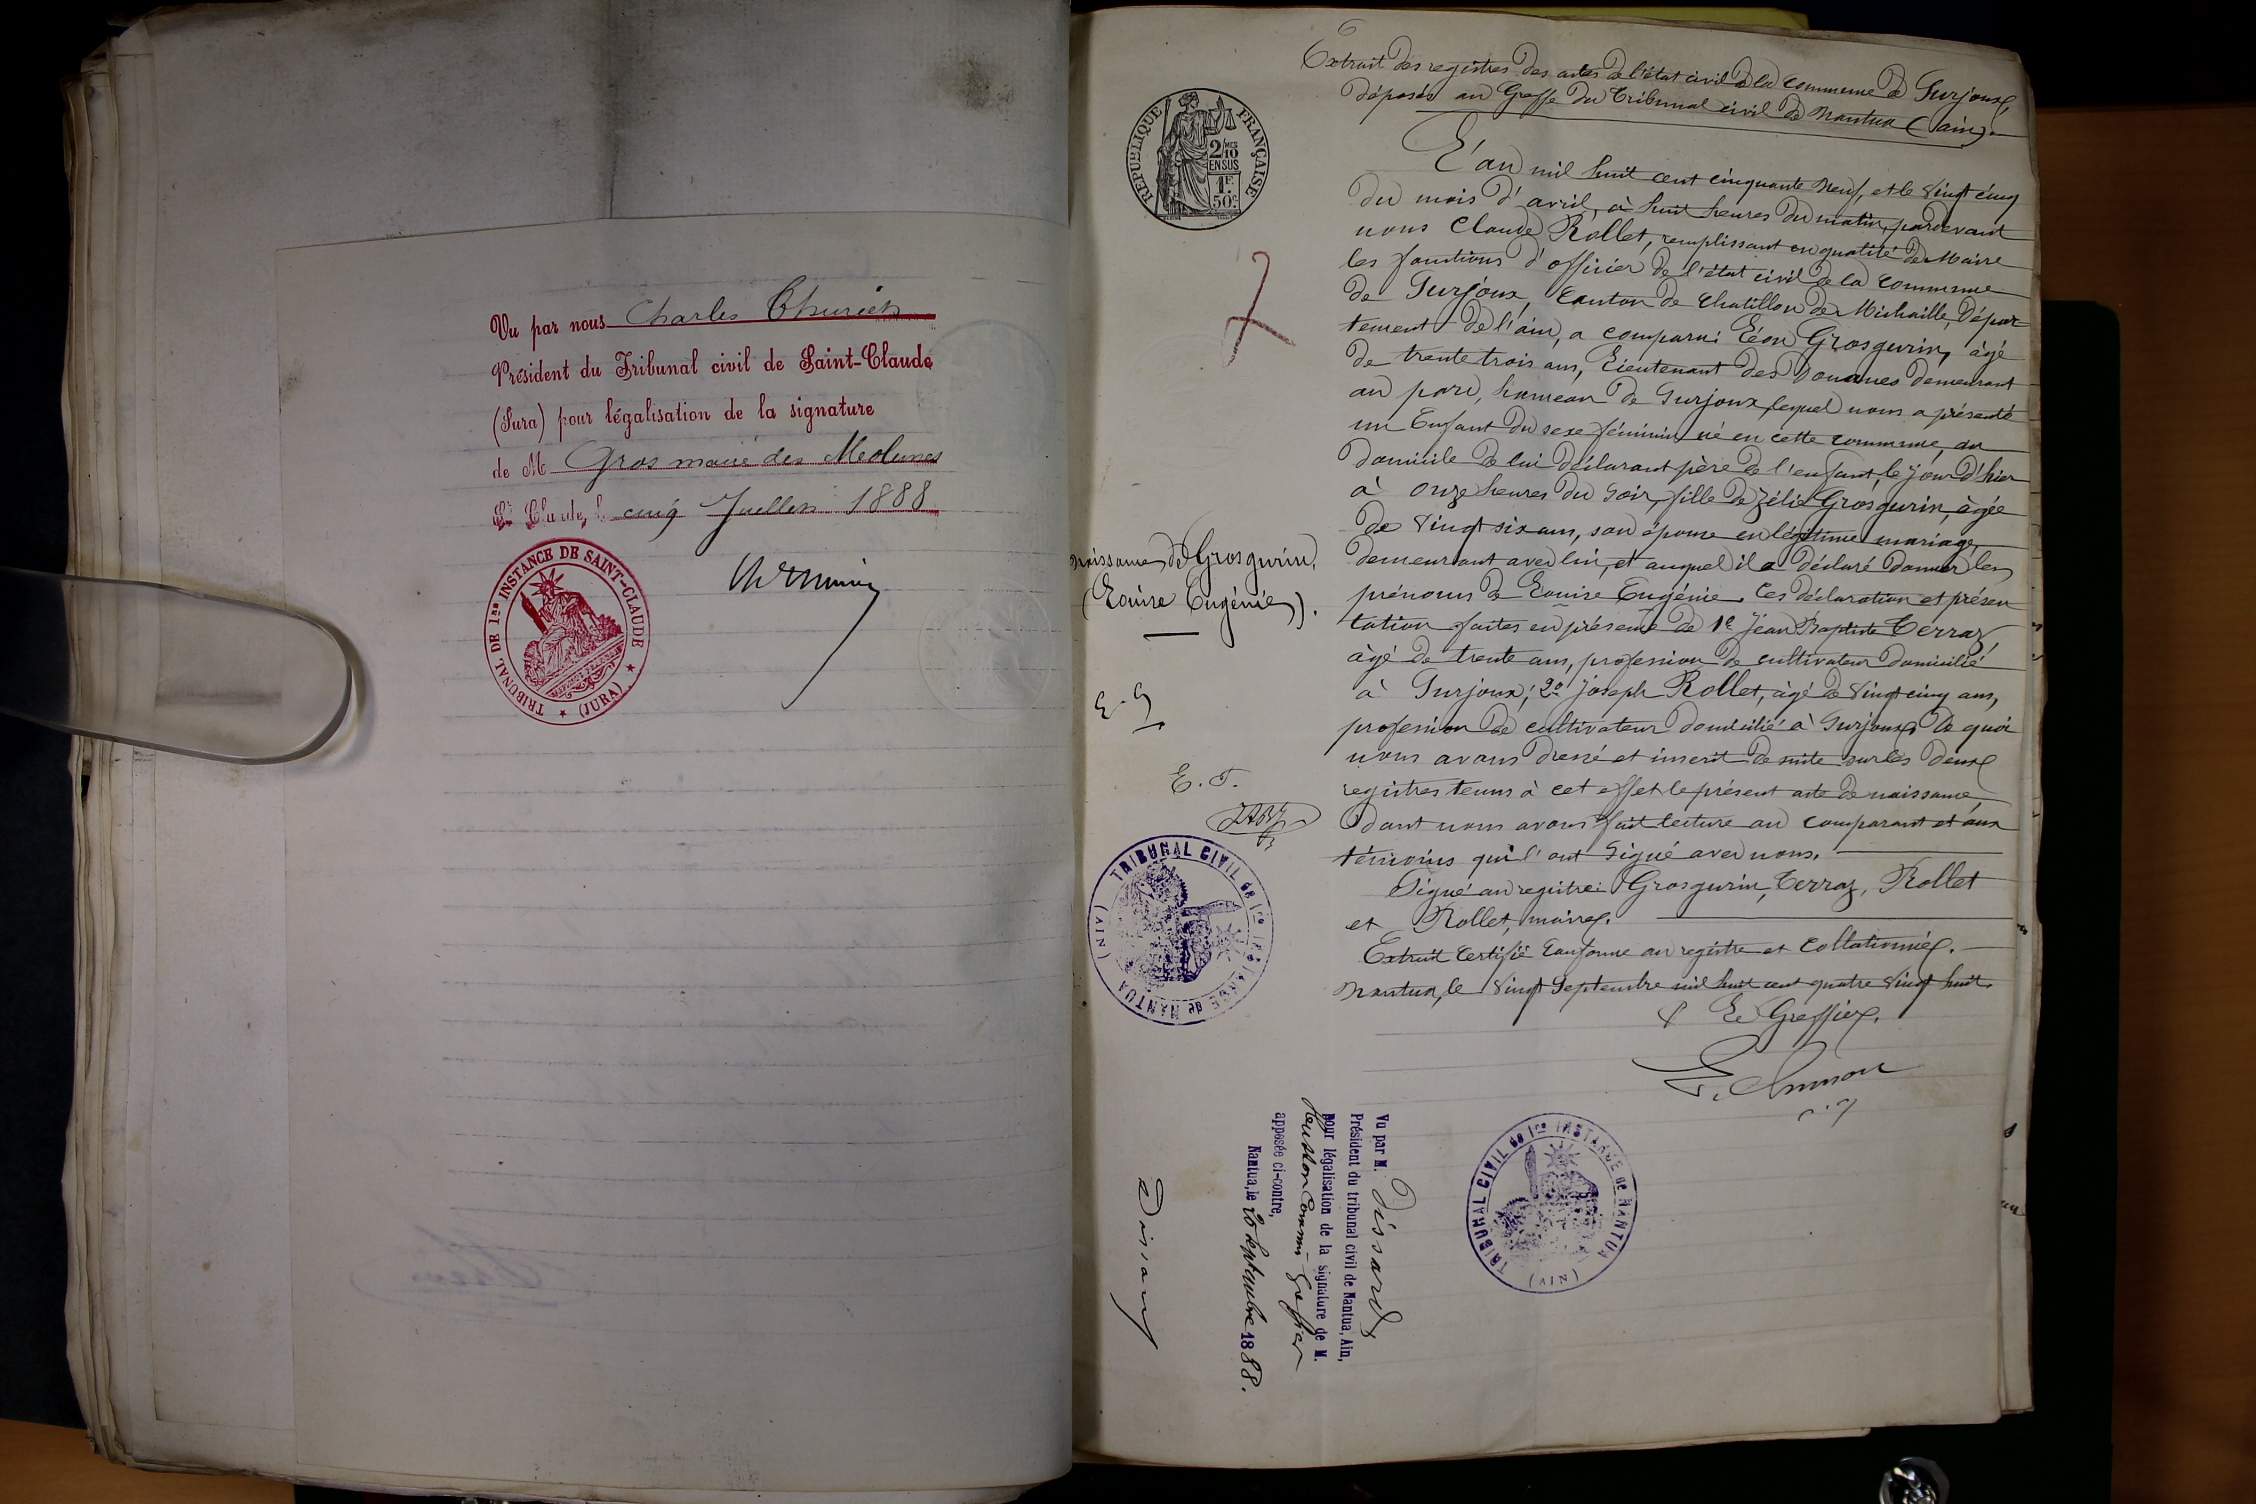 Vu par nous Charles
Président du Tribunal civil de Saint-Claude
(Jura) pour légalisation de la signature
de M Gros maire des Molunes
St Claude, le cinq Juillet 1888
TRIBUNAL DE 1re INSTANCE DE SAINT-CLAUDE
(JURA)
Extrait des registres des actes de l'état civil de la commune de Surjoux,
déposés au Greffe du Tribunal civil de Nantua (ain).
REPUBLIQUE FRANÇAISE
2/10 MES
EN SUS
1F.
50c.
L'an mil huit cent cinquante neuf, et le vingt cinq
du mois d'avril, à huit heures du matin, pardevant
nous Claude Rollet, remplissant en qualité de Maire
les fonctions d'officier de l'état civil de la commune
de Surjoux, Canton de Chatillon de Michaille, Dépar-
tement de l'ain, a comparu: Léon Grosgurin, âgé
de trente trois ans, Lieutenant des Douanes demeurant
au parc, hameau de Surjoux, lequel nous a présenté
un Enfant du sexe féminin né en cette commune, au
domicile de lui déclarant père de l'enfant, le jour d'hier
à onze heures du soir, fille de Zélie Grosgurin, âgée
de vingt six ans, son épouse en légitime mariage,
demeurant avec lui, et auquel il a déclaré donner les
prénoms de Louise Eugénie. Ces déclaration et présen
tation faites en présence de 1º Jean Baptiste Terraz,
âgé de trente ans, profession de cultivateur domicilié
à Surjoux; 2º Joseph Rollet, âgé de vingt cinq ans,
profession de cultivateur domicilié à Surjoux. De quoi
nous avons dressé et inscrit de suite sur les deux
registres tenus à cet effet le présent acte de naissance,
dont nous avons fait lecture au comparant et aux
témoins qui l'ont signé avec nous.
Signé au registre: Grosgurin, Terraz, Rollet
et Rollet, maire.
Extrait Certifié Conforme au registre et collationné.
Nantua, le vingt Septembre mil huit cent quatre vingt huit.
Le Greffier.
Naissance de Grosgurin,
(Louise Eugénie).
E. G
E. T.
TRIBUNAL CIVIL de 1re INSTANCE de NANTUA
(AIN)
Vu par M. Dissard
Président du tribunal civil de Nantua, Ain,
pour légalisation de la signature de M.
Commis-Greffier
apposée ci-contre,
Nantua, le 20 Septembre 1888.
Dissard
TRIBUNAL CIVIL de 1re INSTANCE de NANTUA
(AIN)